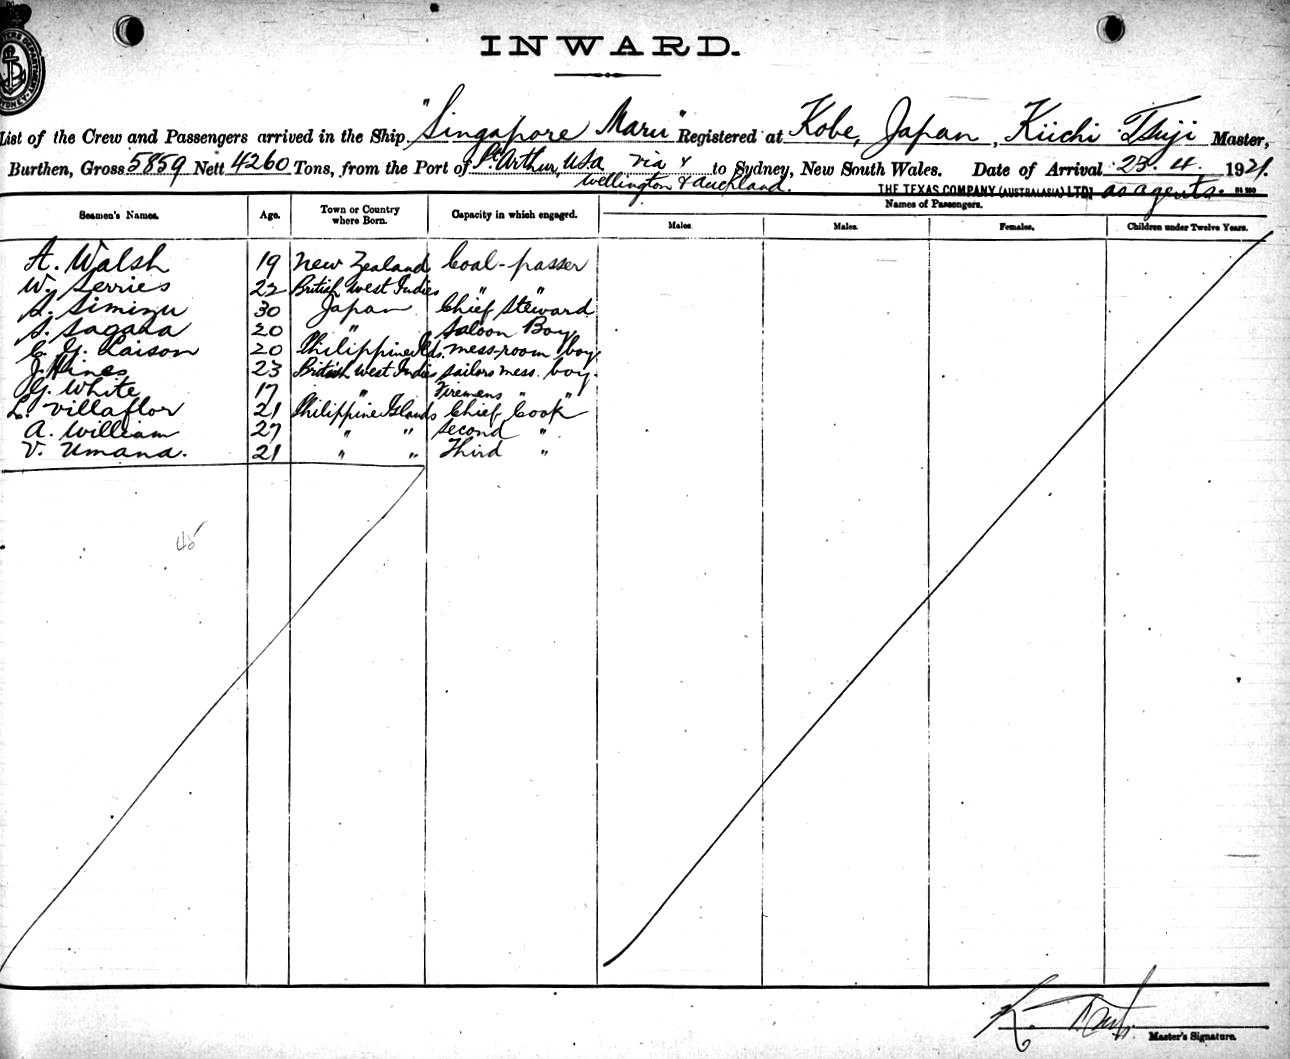 INWARD.
List of the Crew and Passengers arrived in the Ship "Singapore Maru" Registered at Kobe, Japan, Kiichi Tsuji Master,
Burthen, Gross 5859 Nett 4260 Tons, from the Port of Pt. Arthur, USA via & to Sydney, New South Wales. Date of Arrival 25.4. 1921.
Wellington & Auckland. THE TEXAS COMPANY (AUSTRALASIA) LTD as agents.
Seamen's Names. Age. Town or Country where Born. Capacity in which engaged. Names of Passengers.
Males. Males. Females. Children under Twelve Years.
A. Walsh 19 New Zealand Coal-passer
W. Serries 22 British West Indies " "
S. Simizu 30 Japan Chief Steward
S. Sagara 20 " Saloon Boy
C. G. Laison 20 Philippine Ilds. mess-room boy
J. Hines 23 British West Indies sailors mess. boy.
G. White 17 " Firemens " "
L. Villaflor 21 Philippine Islands Chief Cook
A. William 27 " " Second "
V. Umana. 21 " " Third "
45
K. Tsuji
Master's Signature.